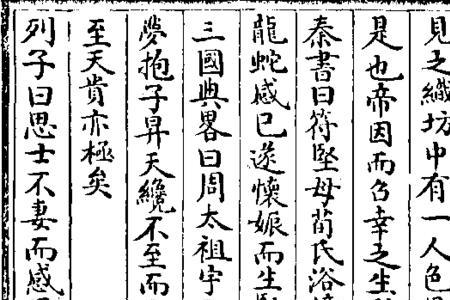 見之織坊中有一人色
是也帝因而召幸之生
秦書曰符堅母茍氏浴
龍蛇感已遂懷娠而生
三國典畧曰周太祖宇
夢抱子昇天纔不至而
至天貴亦極矣
列子曰思士不妻而感